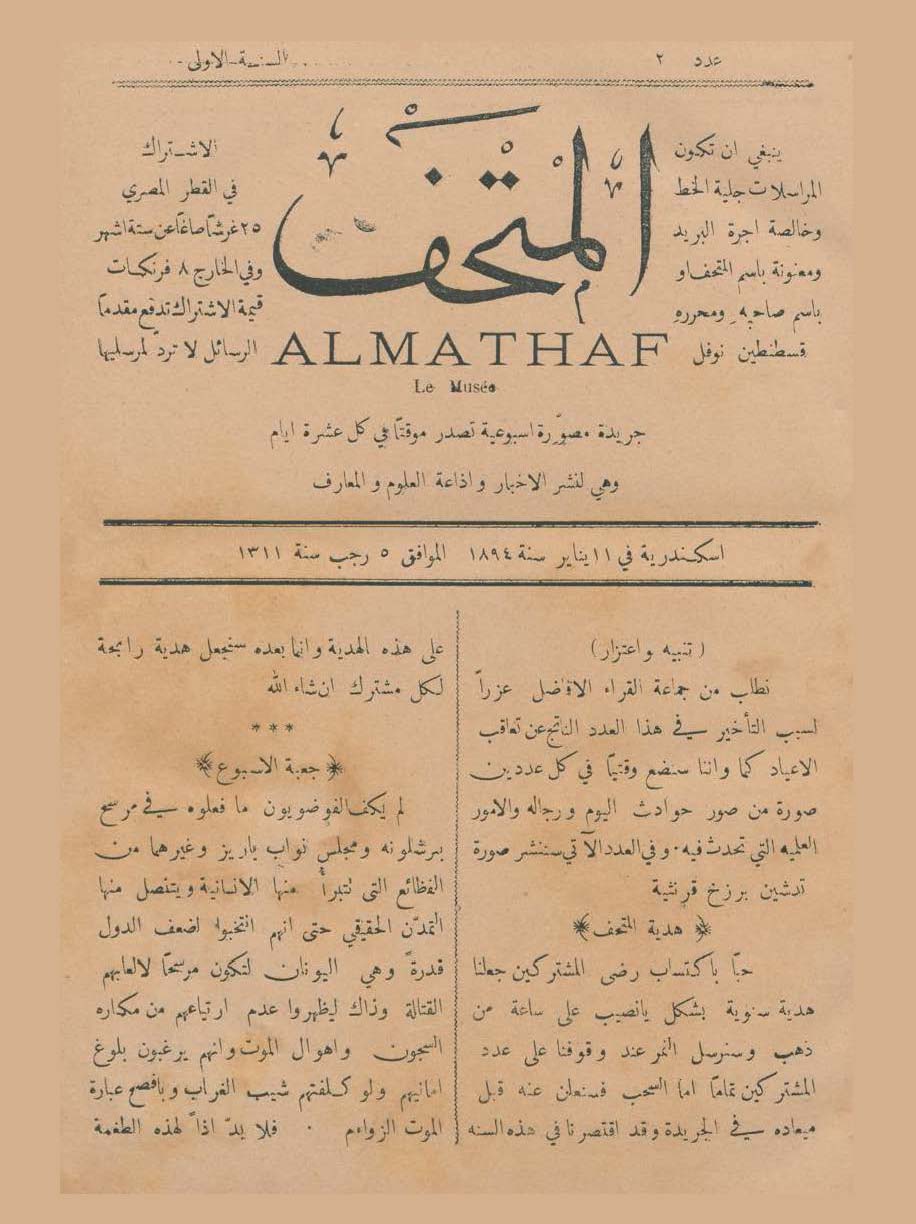 عدد ٢
السنة الاولى
ينبغي ان تكون
المراسلات جلية الخط
وخالصة اجرة البريد
ومعنونة باسم المتحف او
باسم صاحبه ومحرره
قسطنطين نوفل
المتحف
ALMATHAF
Le Musée
الاشتراك
في القطر المصري
٢٥ غرشًا صاغًا عن ستة اشهر
وفي الخارج ٨ فرنكات
قيمة الاشتراك تدفع مقدمًا
الرسائل لا تردّ لمرسليها
جريدة مصوّرة اسبوعية تصدر موقتًا في كل عشرة ايام
وهي لنشر الاخبار و اذاعة العلوم و المعارف
اسكندرية في ١١ يناير سنة ١٨٩٤ الموافق ٥ رجب سنة ١٣١١
( تنبيه و اعتزار )
نطاب من جماعة القراء الافاضل عزراً
لسبب التأخير في هذا العدد الناتج عن تعاقب
الاعياد كما واننا سنضع وقتيًا في كل عددين
صورة من صور حوادث اليوم ورجاله والامور
العلميه التي تحدث فيه . وفي العدد الآتي سننشر صورة
تدشين برزخ قرنثية
﴿ هدية المتحف ﴾
حبًا باكتساب رضى المشتركين جعلنا
هدية سنوية بشكل يانصيب على ساعة من
ذهب وسنرسل النمر عند وقوفنا على عدد
المشتركين تمامًا اما السحب فسنعلن عنه قبل
ميعاده في الجريدة وقد اقتصرنا في هذه السنه
على هذه الهدية وانما بعده سنجعل هدية رابحة
لكل مشترك ان شاء الله
* * *
﴿ جعبة الاسبوع ﴾
لم يكف الفوضويون ما فعلوه في مرسح
برشلونه ومجلس نواب باريز وغيرهما من
الفظائع التى تتبرأ منها الانسانية ويتنصل منها
التمدّن الحقيقي حتى انهم انتخبوا اضعف الدول
قدرةً وهي اليونان لتكون مرسحًا لالعابهم
القتالة وذاك ليظهروا عدم ارتياعهم من مكاره
السجون واهوال الموت وانهم يرغبون بلوغ
امانيهم ولو كلفتهم شيب الغراب وبافصح عبارة
الموت الزوءام . فلا بدّ اذاً لهذه الطغمة